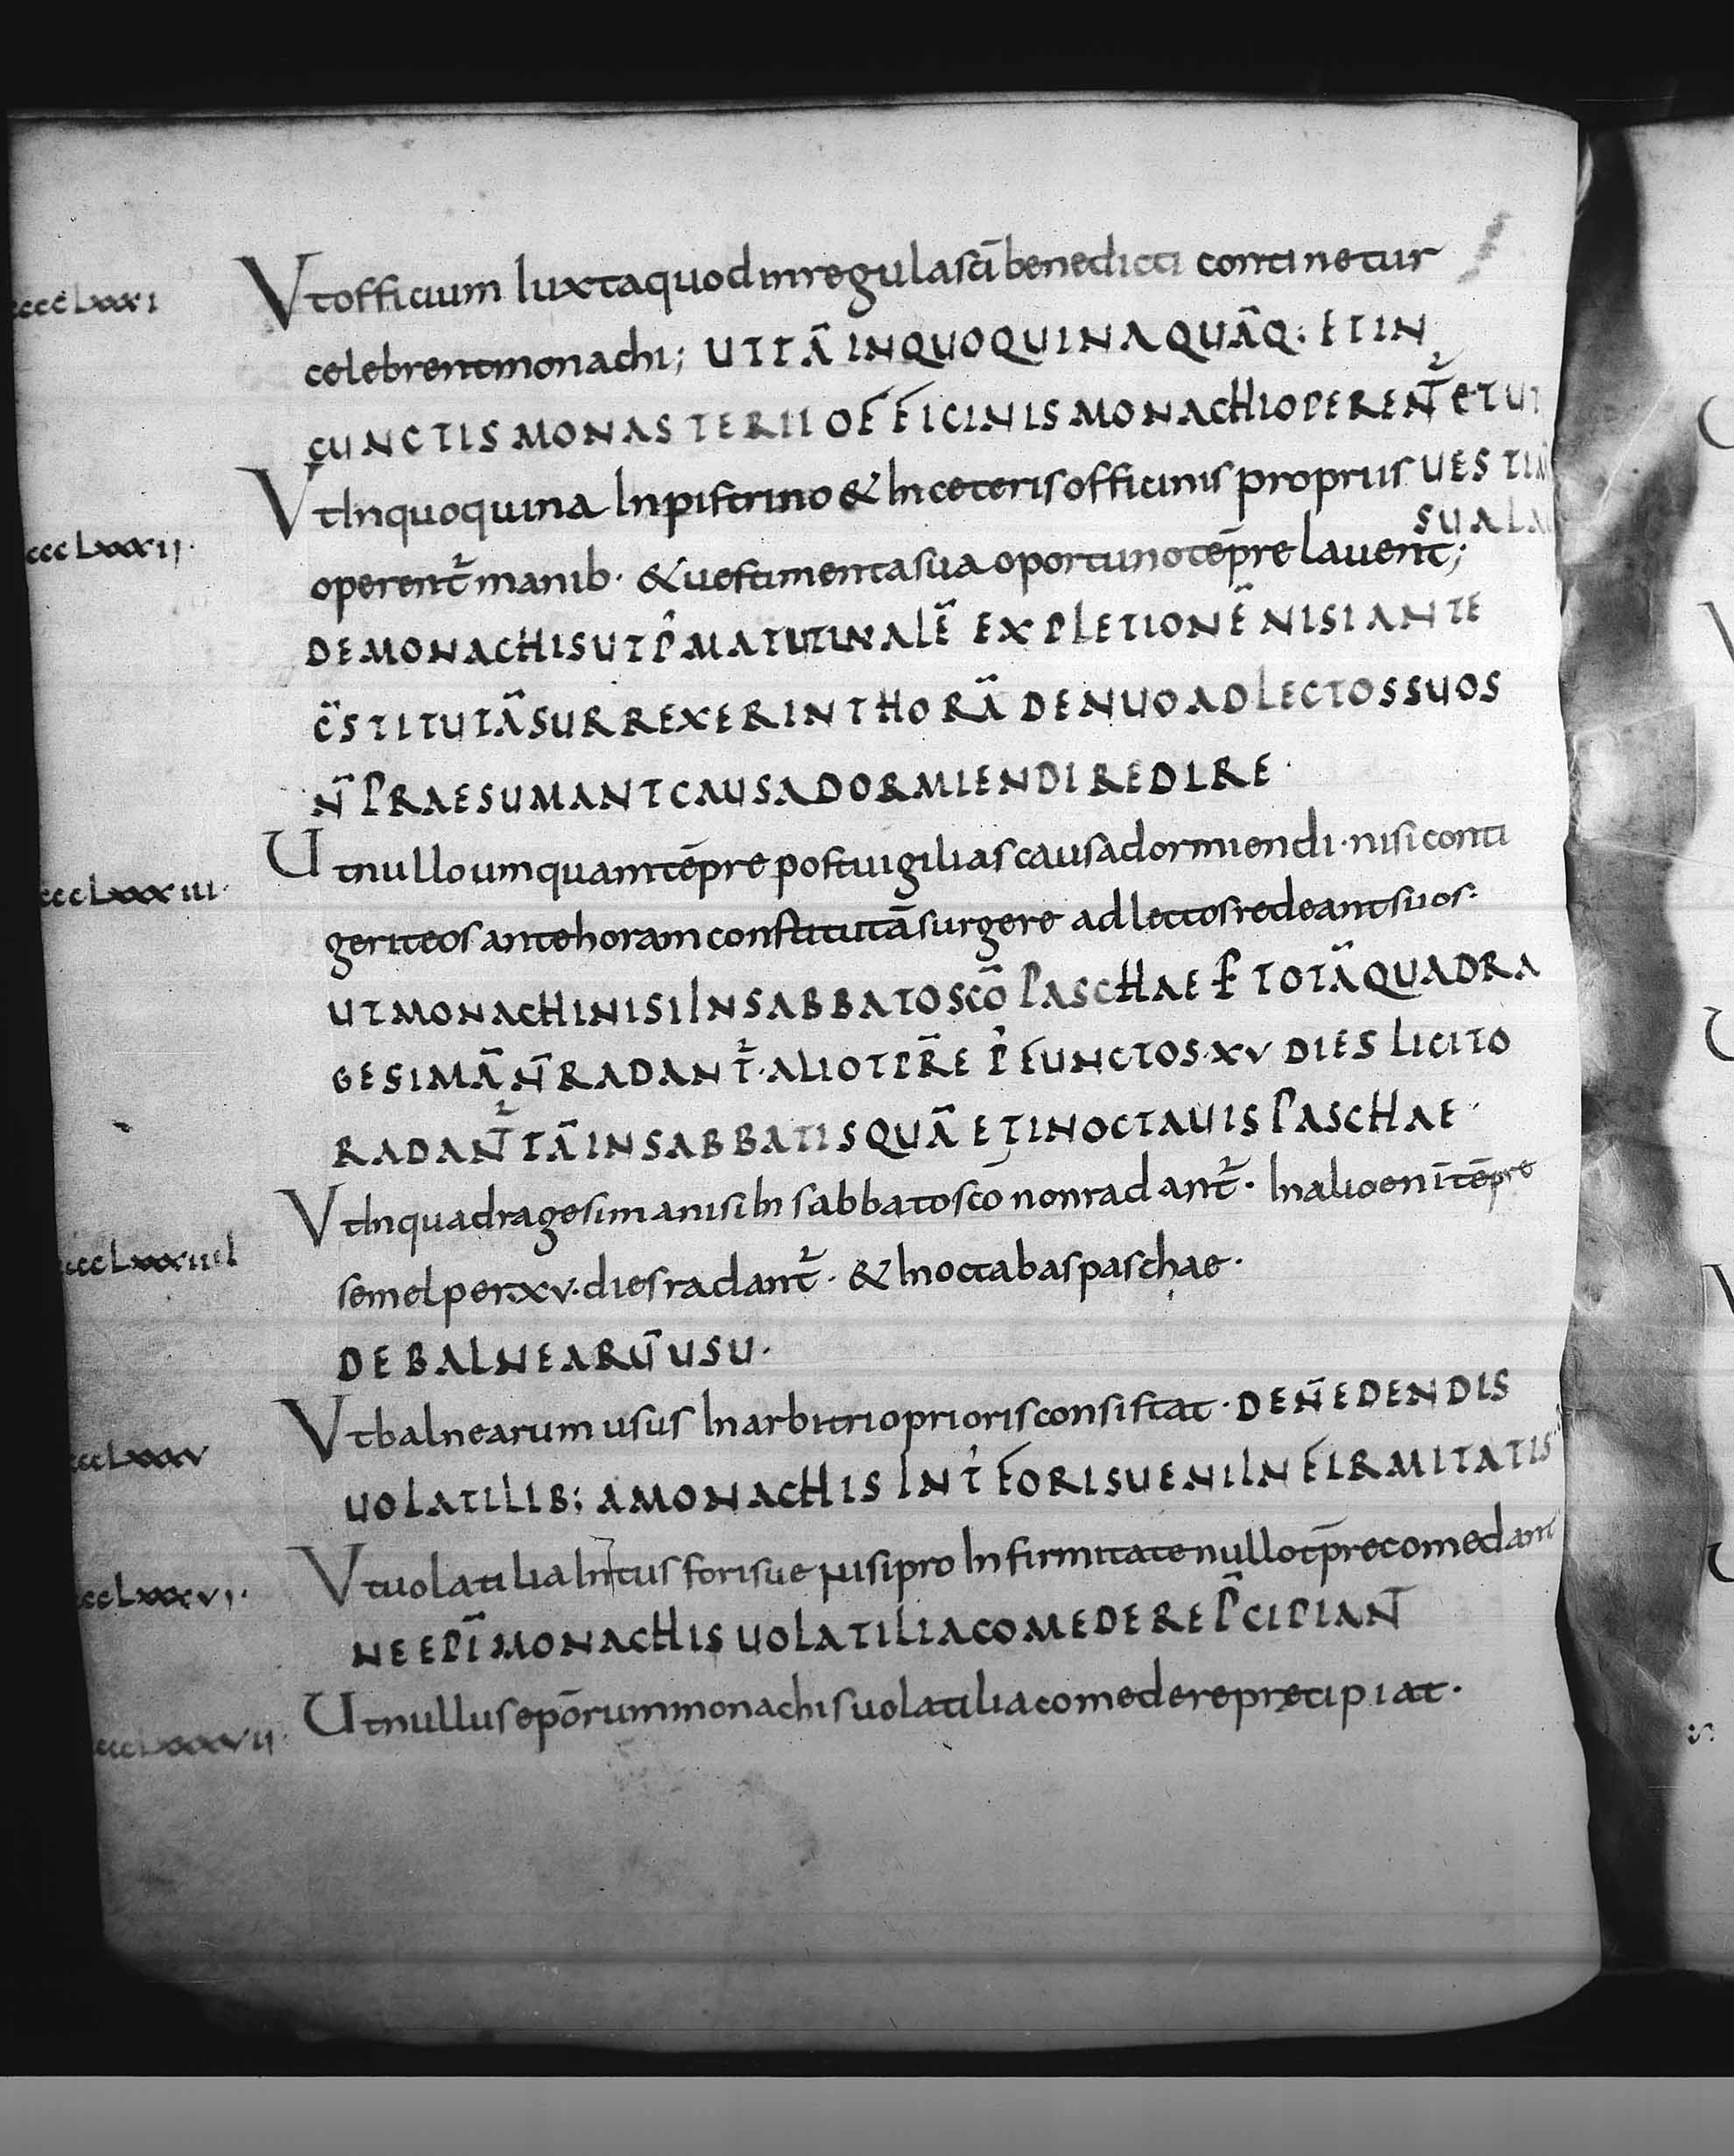 ccccLxxxi
Ut officium Iuxta quod in regula sc̄i benedicti continetur
celebrent monachi; UT TĀ IN QUOQUINA QUĀQ: ET IN
CUNCTIS MONASTERII OFFICINIS MONACHI OPERENT̄ ET UT
VESTIM
SUA LA
cccLxxxii·
Ut In quoquina In pistrino & In ceteris officinis propriis
operent̄ manib· & uestimenta sua oportuno tēpre lauent;
DE MONACHIS UT P̄ MATUTINALĒ EXPLETIONĒ NISI ANTE
C̄STITUTĀ SURREXERINT HORĀ DENUO AD LECTOS SUOS
N̄ PRAESUMANT CAUSA DORMIENDI REDIRE·
cccLxxxiii·
Ut nullo umquam tēpre post uigilias causa dormiendi· nisi conti
gerit eos ante horam constitutā surgere ad lectos redeant suos:
UT MONACHI NISI IN SABBATO SCŌ PASCHAE P̱ TOTĀ QUADRA
GESIMĀ N̄ RADANT̄· ALIO TPR̄E P̄ FUNCTOS·XV DIES LICITO
RADANT̄ TĀ IN SABBATIS QUĀ ET IN OCTAUIS PASCHAE
cccLxxxiiiI
Ut In quadragesima nisi In sabbato scō non radant̄· In alio enī tēpre
semel per·xv·dies radant̄· & In octabas paschae·
DE BALNEARŪ USU·
cccLxxxv
Ut balnearum usus In arbitrio prioris consistat· DE N̄ EDENDIS
UOLATILIB; A MONACHIS INT̄ FORISUE NI INFIRMITATIS
cccLxxxvi·
Ut uolatilia Intus forisue nisi pro Infirmitate nullo tp̄re comedant
NE EPĪ MONACHIS UOLATILIA COMEDERE P̄CIPIANT
cccLxxxvii·
Ut nullus epōrum monachis uolatilia comedere pręcipiat·